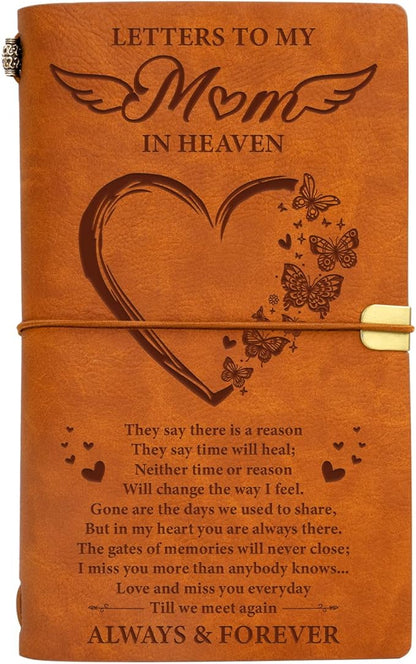 LETTERS TO MY
Mom
IN HEAVEN
They say there is a reason
They say time will heal;
Neither time or reason
Will change the way I feel.
Gone are the days we used to share,
But in my heart you are always there.
The gates of memories will never close;
I miss you more than anybody knows...
Love and miss you everyday
Till we meet again
ALWAYS & FOREVER